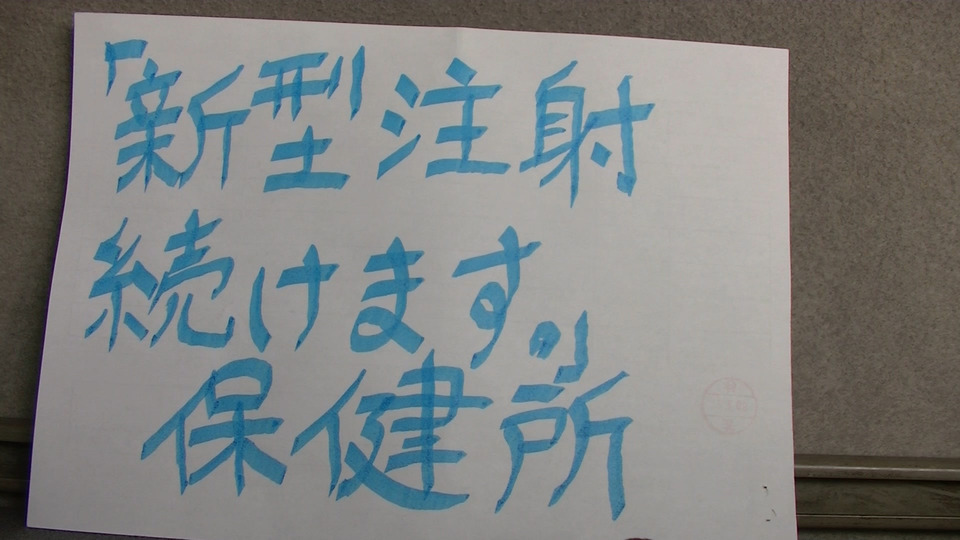 「新型注射
続けます。」
保健所